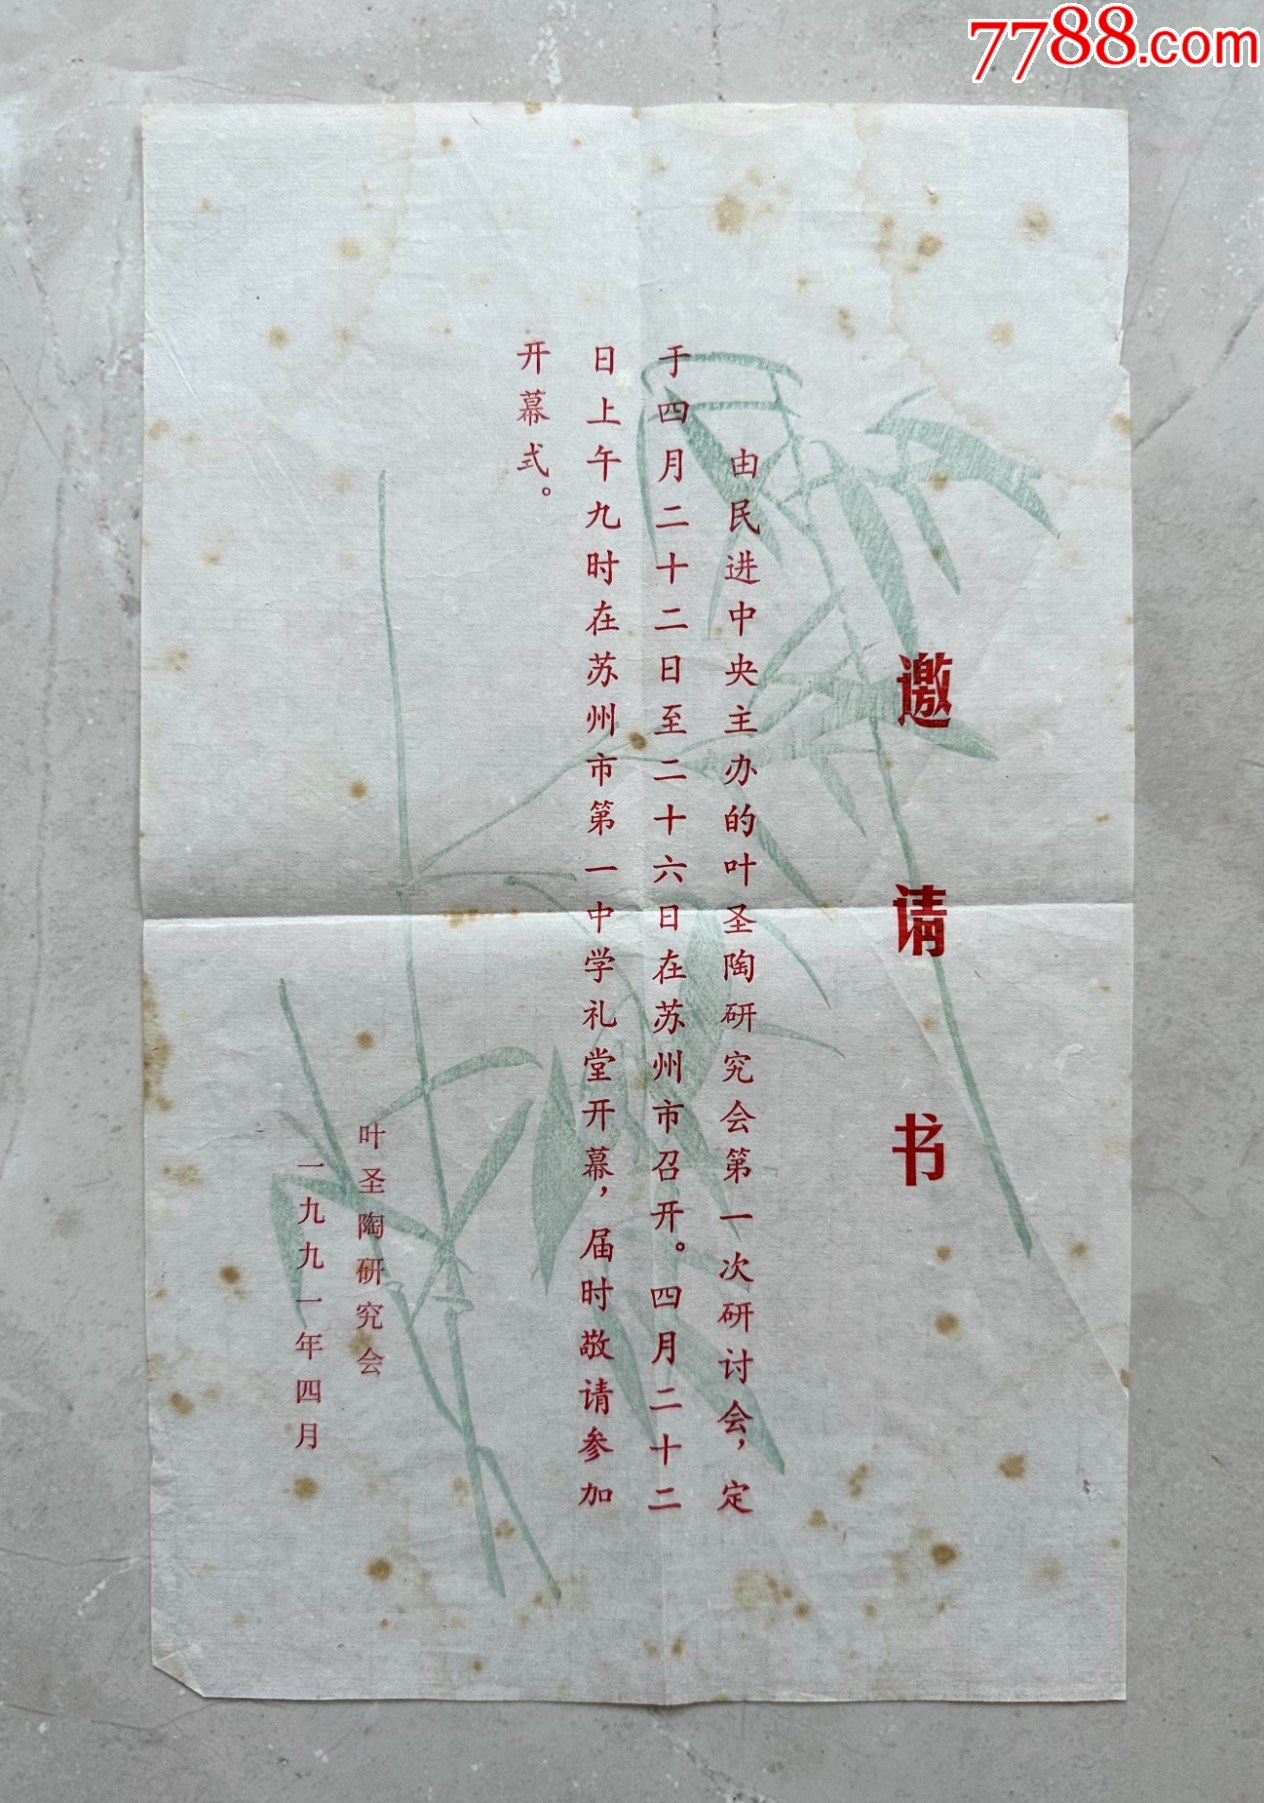 7788.com
邀请书
由民进中央主办的叶圣陶研究会第一次研讨会，定
于四月二十二日至二十六日在苏州市召开。四月二十二
日上午九时在苏州市第一中学礼堂开幕，届时敬请参加
开幕式。
叶圣陶研究会
一九九一年四月